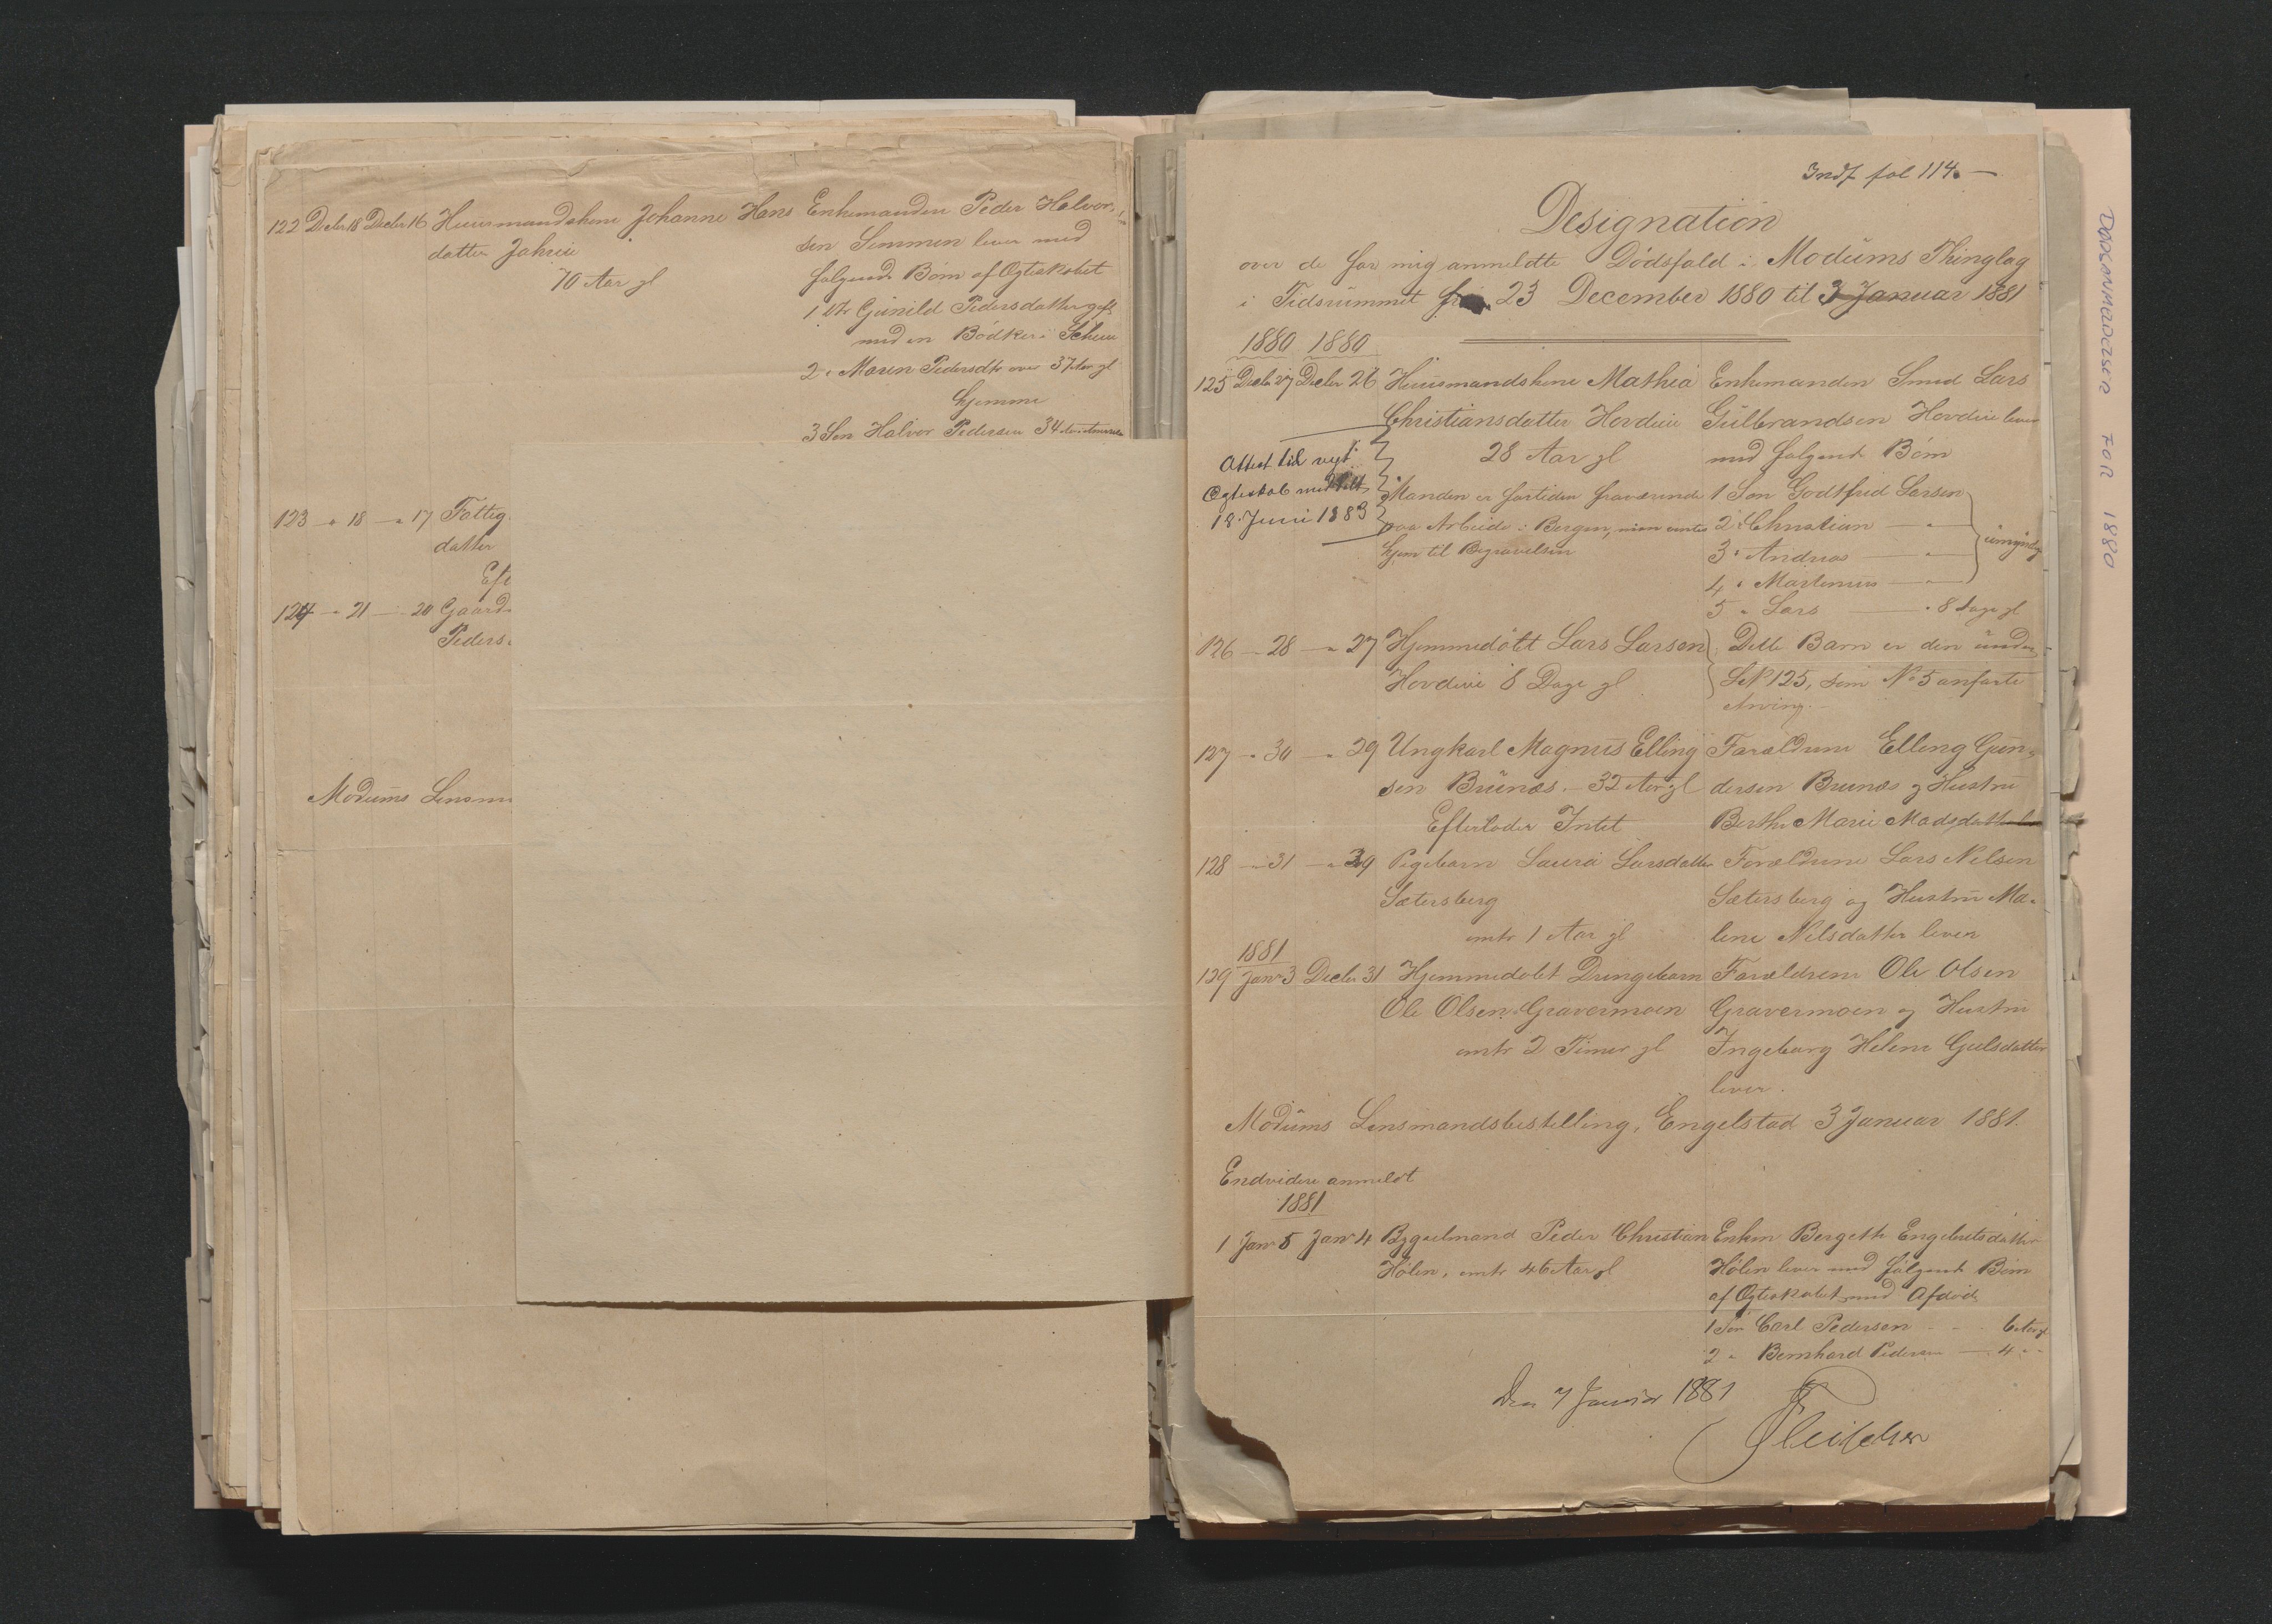 122 Decbr 18 Decbr 16 Huusmandskone Johanne Hans
datter Jahren
70 Aar gl
Enkemanden Peder Halvor
sen Simmen lever med
følgende Børn af Ægteskabet
1 Dtr Gunild Pedersdatter gift
med en Bødker i Skien
2 " Maren Pedersdtr over 37 Aar gl
hjemme
3 Søn Halvor Pedersen 34
123 " 18 " 17 Fattig
datter
Eft
124 " 21 — 20 Gaard
Peders
Modums Lensm
Indf fol 114. —
Designation
over de for mig anmeldte Dødsfald i Modums Thinglag
i Tidsrummet fra 23 December 1880 til 3 Januar 1881
1880 1880
125 Decbr 27 Decbr 26 Huusmandskone Mathea
Christiansdatter Hovdeie
28 Aar gl
Manden er fortiden fraværende
paa Arbeide i Bergen, men
hjem til Begravelsen
Attest til nyt
Ægteskab meddelt
18 Juni 1883
Enkemanden Smed Lars
Gulbrandsen Hovdeie lever
med følgende Børn
1 Søn Godtfred Larsen
2 " Christian — "
3 " Andreas — "
4 " Martinius — "
umyndig
5 " Lars — " 8 Dage gl
126 — 28 — " 27 Hjemmedøbt Lars Larsen
Hovdeie 8 Dage gl
Dette Barn er den under
No 125, som No 5 anførte
Arving.
127 — " 30 — " 29 Ungkarl Magnus Elling
sen Bunæs. — 32 Aar gl
Efterlader Intet
Forældrene Elling Gun-
dersen Bunæs og Hustru
Berthe Marie Madsdatter
128 — " 31 — " 29 Pigebarn Laura Larsdatter
Sætersberg
omtr 1 Aar gl
Forældrene Lars Nilsen
Sætersberg og Hustru Ma-
lene Nilsdatter lever
1881
129 Janr 3 Decbr 31 Hjemmedøbt Drengebarn
Ole Olsen Gravermoen
omtr 2 Timer gl
Forældrene Ole Olsen
Gravermoen og Hustru
Ingeborg Helene Gulsdatter
lever.
Modums Lensmandsbestilling, Engelstad 3 Januar 1881.
Endvidere anmeldt
1881
1 Janr 5 Janr 4 Bygselmand Peder Christian
Hølen, omtr 46 Aar gl
Enken Bergethe Engebretsdatter
Hølen lever med følgende Børn
af Ægteskabet med Afdøde
1 Søn Carl Pedersen — 6 Aar gl
2 " Bernhard Pedersen — 4 " "
Den 7 Januar 1881
Fleischer
DØDSANMELDELSER FOR 1880